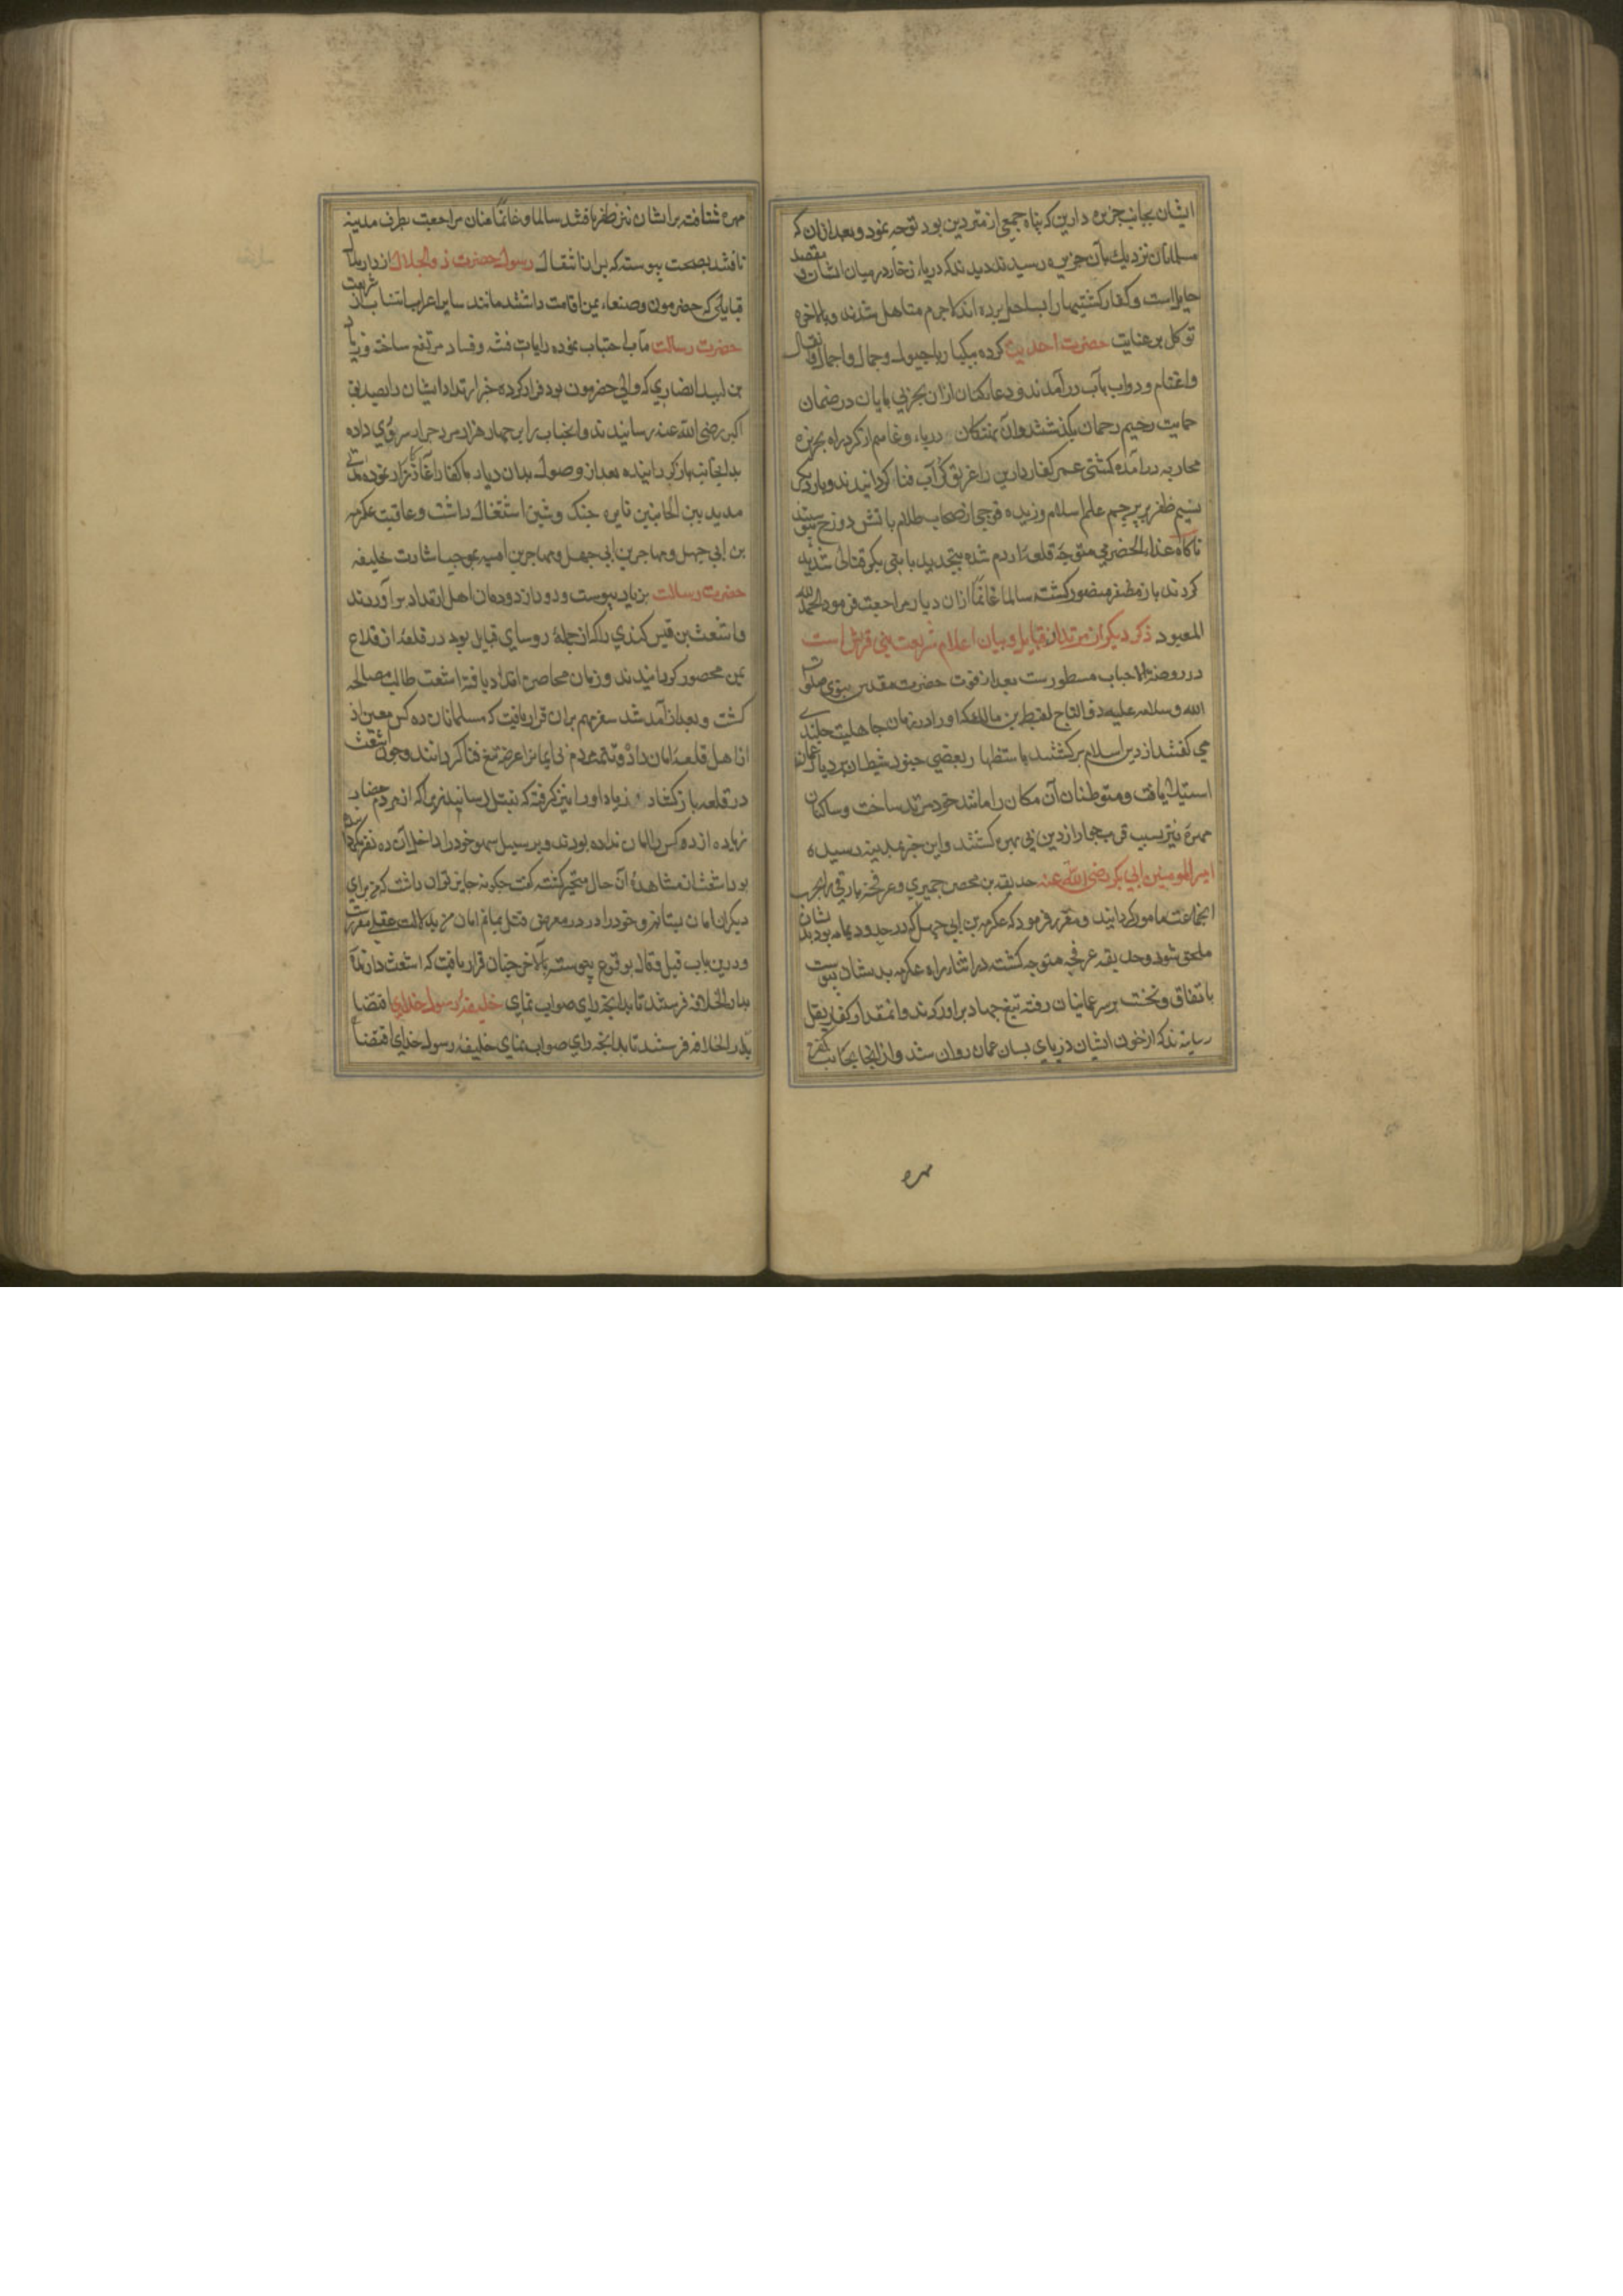 ایشان بجانب جزیره دارین که پناه جمعی از متمردین بود توجه نمود و بعد از ان که
مسلمانان نزدیک بآن جزیره رسیدند دیدند که دریاء زخار در میان ایشان و مقصد
حایل است و کفار کشتیها را بساحل برده اند لاجرم متاهل شدند و بالاخره
توکل بر عنایت حضرت احدیت کرده بیکبار با خیول و جمال و احمال و اثقال
و اغنام و دواب بآب در آمدند و دعا کنان ازان بحر بی پایان در ضمان
حمایت رحیم رحمان بگذشتند و ان نهنکان دریاء وغا سم از کرد راه بجزیره
محاربه در آمده کشتی عمر کفار دارین را غریق آب فنا کردانیدند و بار دیکر
نسیم ظفر بر پرچم علم اسلام وزیده فوجی از اصحاب ظلام بآتش دوزخ پیوستند
ناکاه علاء الحضرمی متوجه قلعه ردم شده بتجدید با بنی بکر قتالی شدید
کردند باز مظفر و منصور کشته سالما غانما ازان دیار مراجعت فرمود الحمد لله
المعبود ذکر دیکر از مرتدان قبایل و بیان اعلام شریعت نبی قرشی است
در روضة الاحباب مسطورست بعد از فوت حضرت مقدس نبوی صلوات
الله و سلامه علیه ذو التاج لقیط بن مالک که او را در زمان جاهلیت جلندی
می گفتند از دین اسلام برکشتند باستظهار بعضی جنود شیطان بر دیار عمان
استیلا یافت و متوطنان آن مکان را مانند خود مرتد ساخت و ساکنان
مهره نیز بسبب قرب جوار از دین بی بهره کشتند و این خبر بمدینه رسیده
امیر المومنین ابی بکر رضی الله عنه حذیفه بن محصن حمیری و عرفجه بارقی را بحرب
انجماعت مامور کردانید و مقرر فرمود که عکرمه بن ابی جهل که در حدود یمامه بود بدیشان
ملحق شود و حذیفه عرفجه متوجه کشته در اثناء راه عکرمه بدیشان پیوست
باتفاق و نخست بر سر عمانیان رفته تیغ جهاد بر اوردند و انمقدار کفار بقتل
رسانیدند که از خون ایشان دریای بسان عمان روان شد و از انجا بجانب کفره
مهره
مهره شتافته بر ایشان نیز ظفر یافتند سالما و غانما عنان مراجعت بطرف مدینه
تافتند بصحت پیوسته که بر انتقال رسول حضرت ذو الجلال از دار ملال
قبایلی که حضرموت و صنعاء یمن اقامت داشتند مانند سایر اعراب از شریعت
حضرت رسالت مآب اجتناب نموده رایات فتنه و فساد مرتفع ساختند و زیاد
بن لبید انصاری که والی حضرموت بود فرار کرده خبر ارتداد ایشان را بصدیق
اکبر رضی الله عنه رسانیدند و انجناب زیاد را چهار هزار مرد جرار سروری داده
بدانجانب باز کردانیده بعد از وصول بدان دیار با کفار آغاز نموده مدتی
مدید بین الجانبین نایره جنک و شین اشتغال داشت و عاقبت عکرمه
بن ابی جهل و مهاجر بن ابی جهل و مهاجر بن امیه بموجب اشارت خلیفه
حضرت رسالت بزیاد پیوست و دود از دودمان اهل ارتداد بر آوردند
و اشعث بن قیس کندی را که از جمله روسای قبایل بود در قلعه از قلاع
یمن محصور کردانیدند و زمان محاصره امتداد یافته اشعث طالب مصالحه
کشت و بعد از آمد شد سفر مهم بران قرار یافت که مسلمانان ده کس معین از
اهل قلعه امان داده و تتمه مردم بی ایمان را عرضه تیغ فنا کردانند و چون اشعث
در قلعه باز کشاد زیاد او را نیز گرفته که بقتل رساند زیرا که از مردم حصار
زیاده از ده کس را امان نداده بودند و بر سبیل سهو خود را داخل آن ده نفر نکرده
بود اشعث از مشاهده آن حال متحیر کشته کفت چکونه جایز توان داشت که من برای
دیکران امان بستانم و خود را در معرض قتل بمانم امان من بدلالت عقل مقررست
و درین باب قیل و قال بوقوع پیوسته بآلاخر چنان قرار یافت که اشعث را زنده
بدار الخلافه فرستند تا بدانچه رای صواب نمای خلیفه رسول خدای اقتضا
بدار الخلافه فرستند تا بدانچه رای صواب نمای خلیفه رسول خدای اقتضا